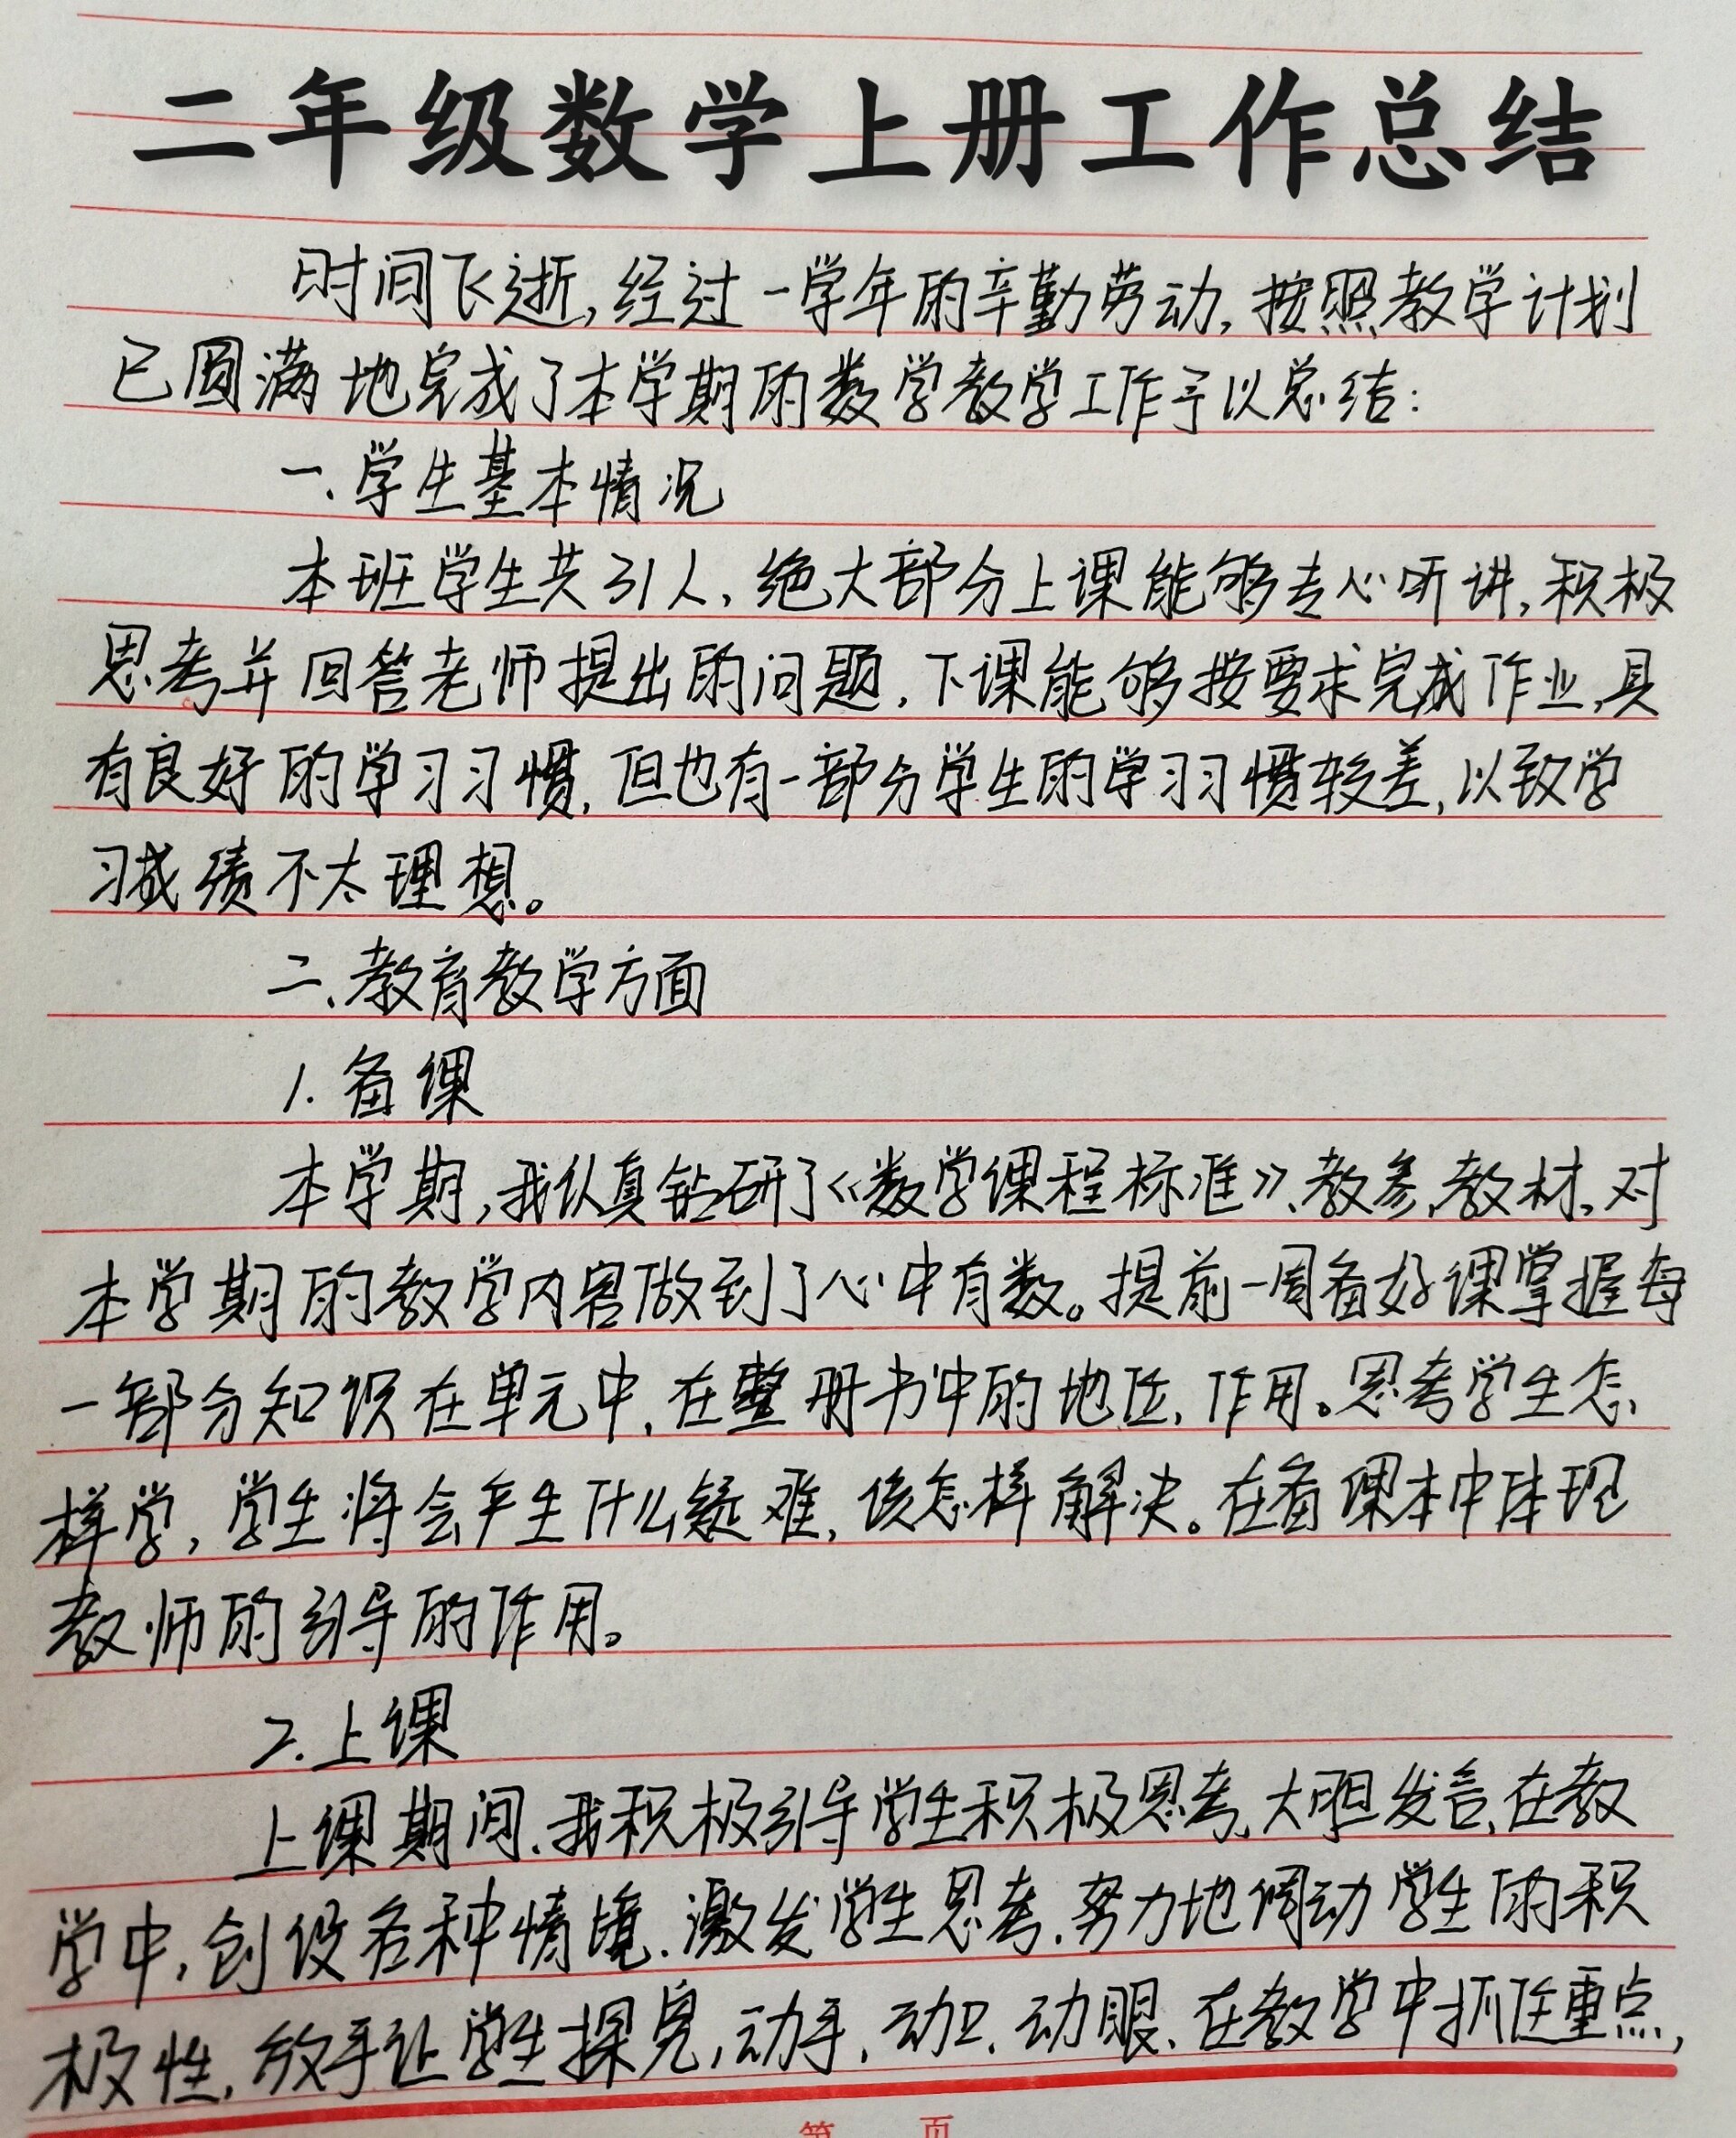 二年级数学上册工作总结
时间飞逝,经过一学年的辛勤劳动,按照教学计划
已圆满地完成了本学期的数学教学工作予以总结:
一、学生基本情况
本班学生共31人,绝大部分上课能够专心听讲,积极
思考并回答老师提出的问题,下课能够按要求完成作业,具
有良好的学习习惯,但也有一部分学生的学习习惯较差,以致学
习成绩不太理想。
二、教育教学方面
1.备课
本学期,我认真钻研了《数学课程标准》、教参、教材。对
本学期的教学内容做到了心中有数。提前一周备好课掌握每
一部分知识在单元中,在整册书中的地位,作用。思考学生怎
样学,学生将会产生什么疑难,该怎样解决。在备课本中体现
教师的引导的作用。
2.上课
上课期间,我积极引导学生积极思考,大胆发言,在教
学中,创设各种情境,激发学生思考,努力地调动学生的积
极性,放手让学生探究,动手,动口,动眼、在教学中抓住重点,
第 页